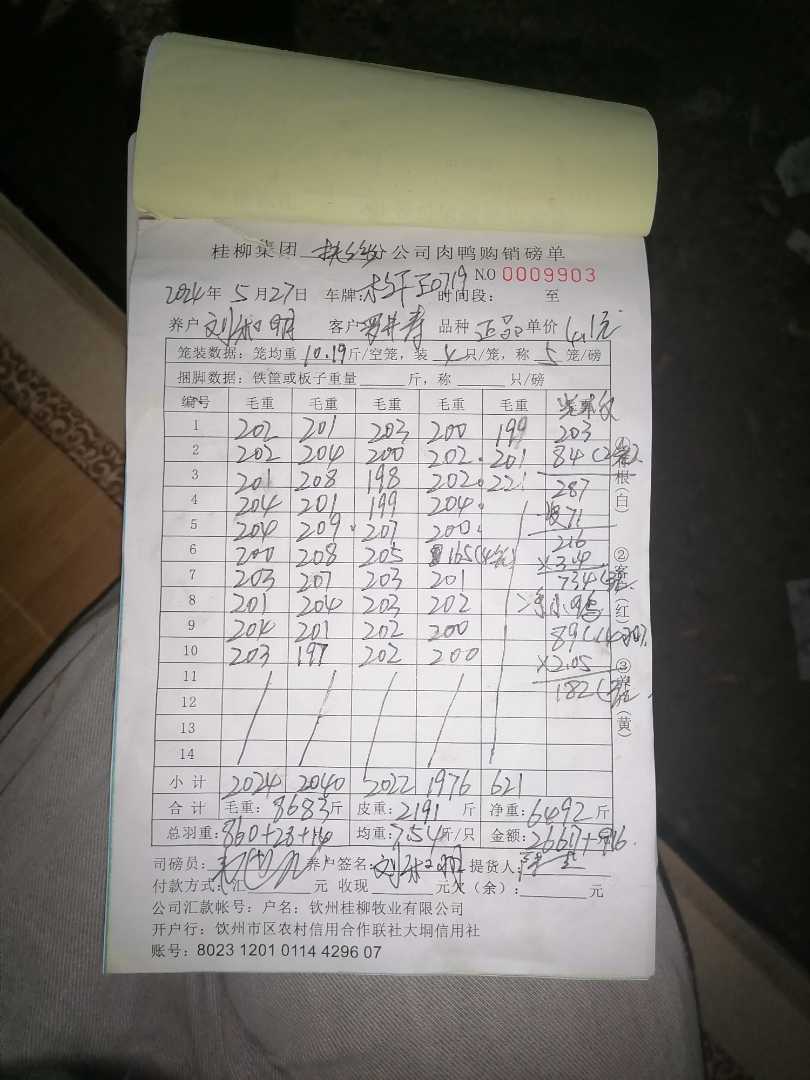 桂柳集团 扶绥分公司肉鸭购销磅单
NO 0009903
2024年 5月27日 车牌: 时间段: 至
养户 刘 明 客户 寿 品种 正品 单价 4.1元
笼装数据: 笼均重 10.19斤/空笼, 装 4 只/笼, 称 5 笼/磅
捆脚数据: 铁筐或板子重量 斤, 称 只/磅
编号 毛重 毛重 毛重 毛重 毛重
1 202 201 203 200 199 203
2 202 204 200 202 201 84
3 201 208 198 202 221 287
4 204 201 199 204 71
5 204 209 207 200 216
6 200 208 205 165 ×3.4
7 203 207 203 201 734
8 201 204 203 202
9 204 201 202 200 89
10 203 197 202 200 ×2.05
11 182
12
13
14
小计 2024 2040 2022 1976 621
合计 毛重: 8683斤 皮重: 2191 斤 净重: 6492 斤
总羽重: 860+28+14 均重: 7.54斤/只 金额: 26617+916
司磅员: 养户签名: 刘 明 提货人:
付款方式: 汇 元 收现 元欠(余): 元
公司汇款帐号: 户名: 钦州桂柳牧业有限公司
开户行: 钦州市区农村信用合作联社大垌信用社
账号: 8023 1201 0114 4296 07
根(白)
②客(红)
③(黄)